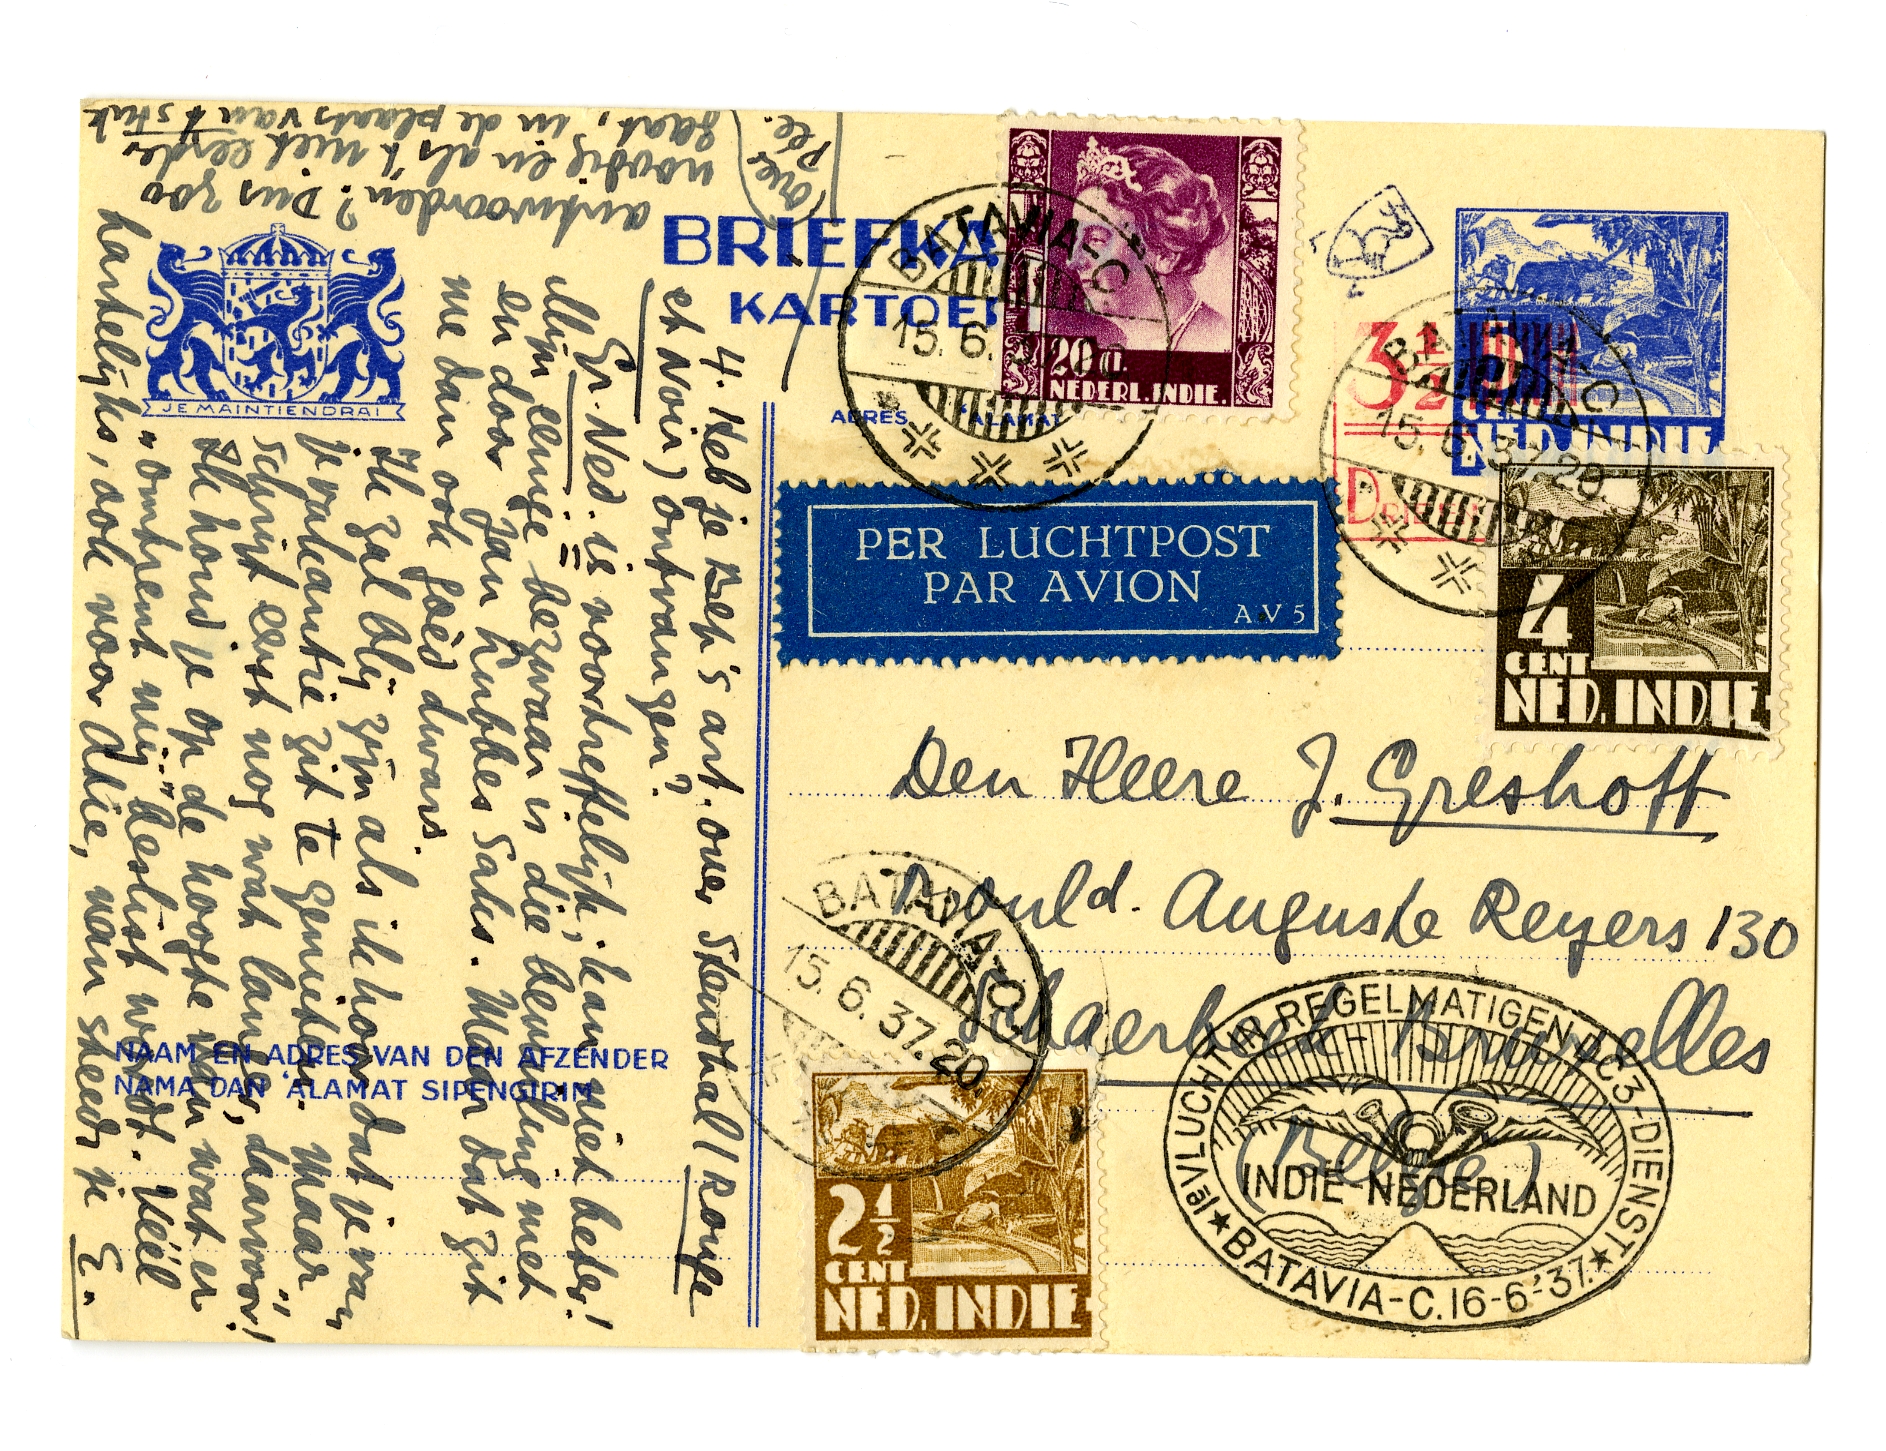 antwoorden? Dus zoo
noodig en als 't niet eerder
gaat, in de plaats van 't stuk
over
Poe.
JE MAINTIENDRAI
BRIEFKA
KARTOE
ADRES 'ALAMAT
4. Heb je Bep's art. over Stendhal (Rouge
et Noir) ontvangen?
Gr. Ned. is voortreffelijk, kan niet beter!
Mijn eenige bezwaar is die bewonding met
en door Jan Lubbes Saks. Maar dat zit
me dan ook goèd dwars.
Ik zal blij zijn als ik hoor dat je van
je vacantie zit te genieten. Maar
schrijf eerst nog wat langer, daarvoor!
Ik houd je op de hoogte van wat er
"omtrent mij" beslist wordt. Véél
hartelijks, ook voor Atie, van steeds je
E.
NAAM EN ADRES VAN DEN AFZENDER
NAMA DAN 'ALAMAT SIPENGIRIM
BATAVIA-C
15.6.
20 ct
NEDERL. INDIE.
3½
BATAVIA-C
15.6.37.20
NED. INDIE
4
CENT
NED. INDIE
PER LUCHTPOST
PAR AVION
A.V 5
Den Heere J. Greshoff
Bould. Auguste Reyers 130
Schaerbeek-Bruxelles
(België)
BATAVIA-C
15.6.37.20
2½
CENT
NED. INDIE
1e VLUCHT IN REGELMATIGEN DC3-DIENST
INDIË-NEDERLAND
BATAVIA-C. 16-6-'37.